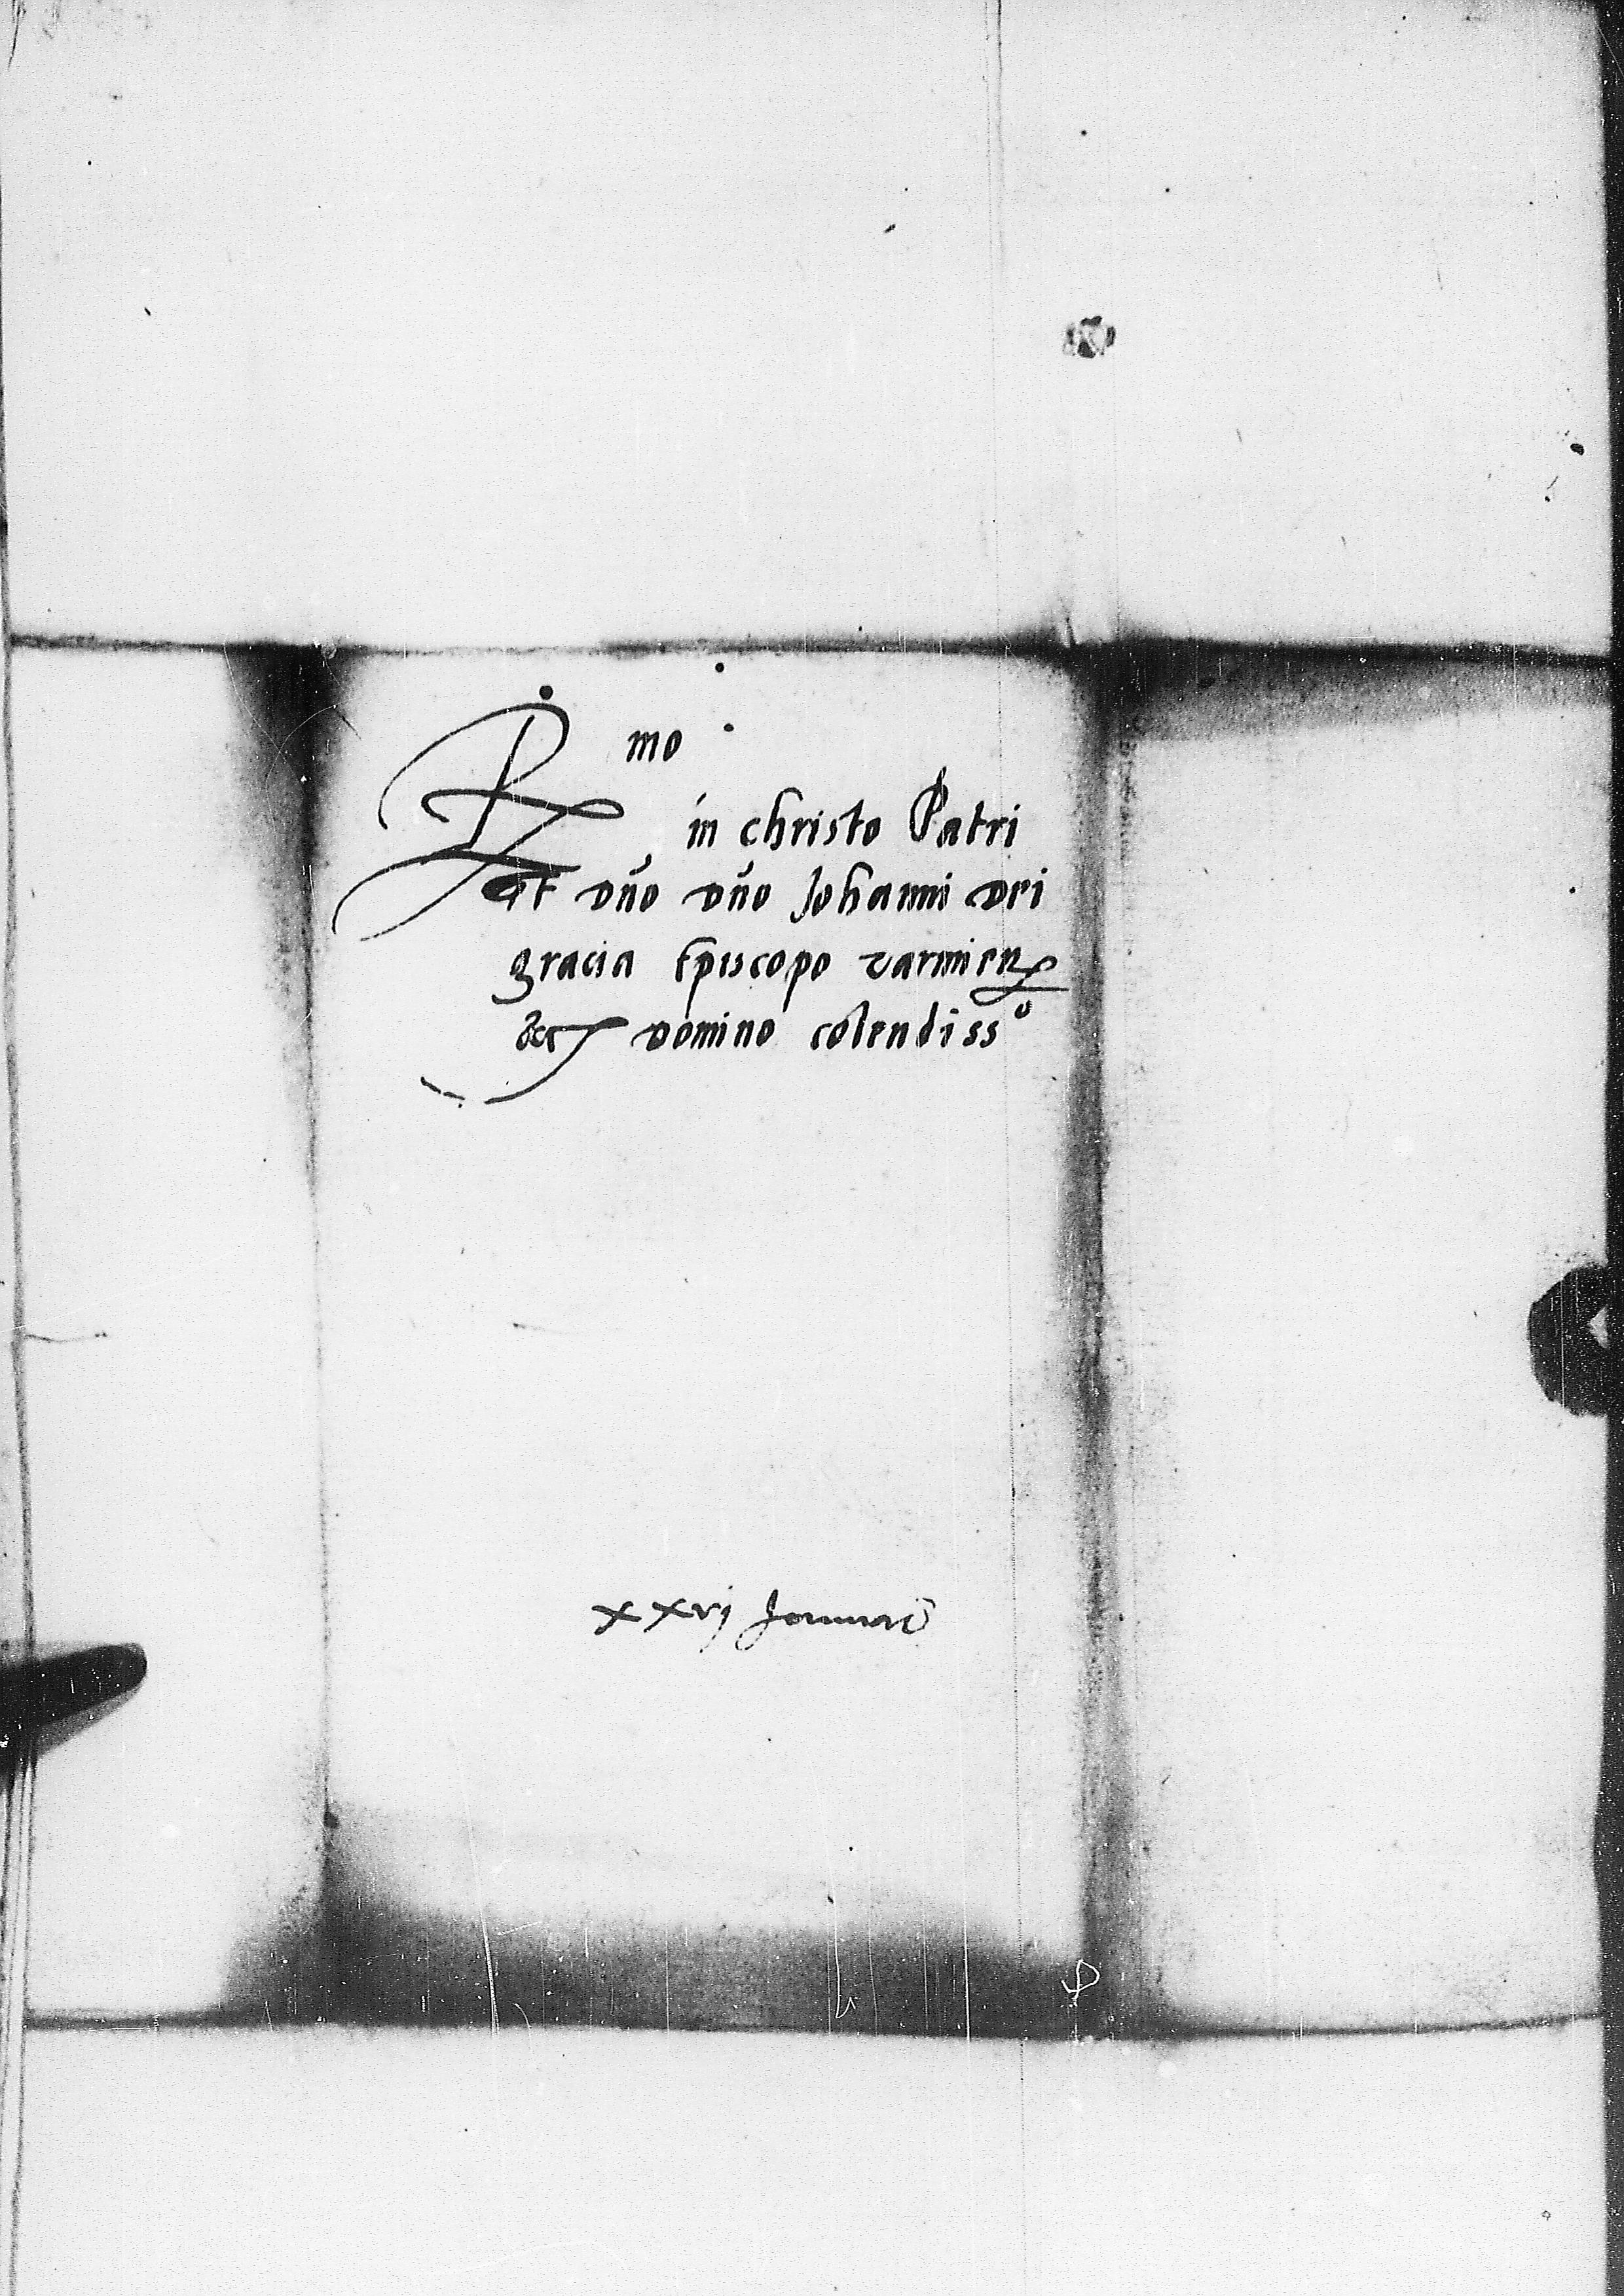 R mo
in christo Patri
et dño dño Johanni dei
gracia Episcopo varmien
&c domino colendiss o
xxvj Januarii